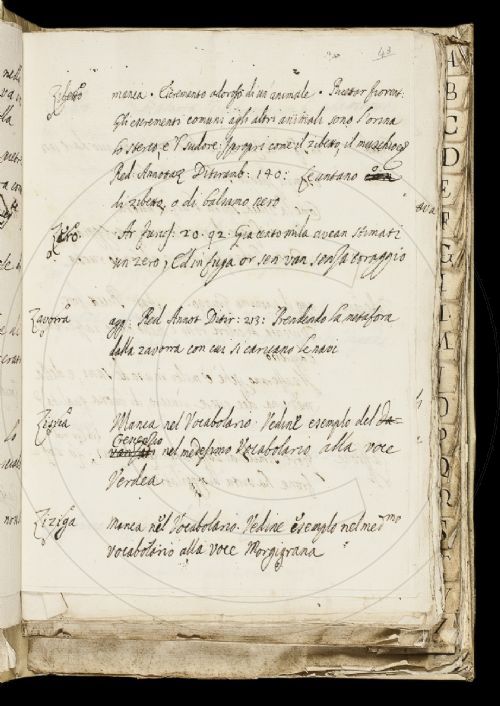 43
Zibetto manca. Escremento odoroso di un'animale. Pucctor fiorent:
Gli escrementi comuni agli altri animali sono l'orina
lo sterco, e 'l sudore: propri come il zibetto, il muschio
Red: Annotaz Ditiramb: 140: se untano
di zibetto, o di balsamo nero
Zero. Ar furios: 20. 92. Gia cento mila avean stimati
un zero, Ed in fuga or sen van senza coraggio
Zavorra agg: Red Annot Ditir: 213: Prendendo la metafora
dalla zavorra con cui si caricano le navi
Manca nel Vocabolario. Vedine esempio del
nel medesimo Vocabolario alla voce
Verdea
Ziziga manca nel Vocabolario. Vedine esempio nel med.mo
vocabolario alla voce Morgigrana
A
B
C
D
E
F
G